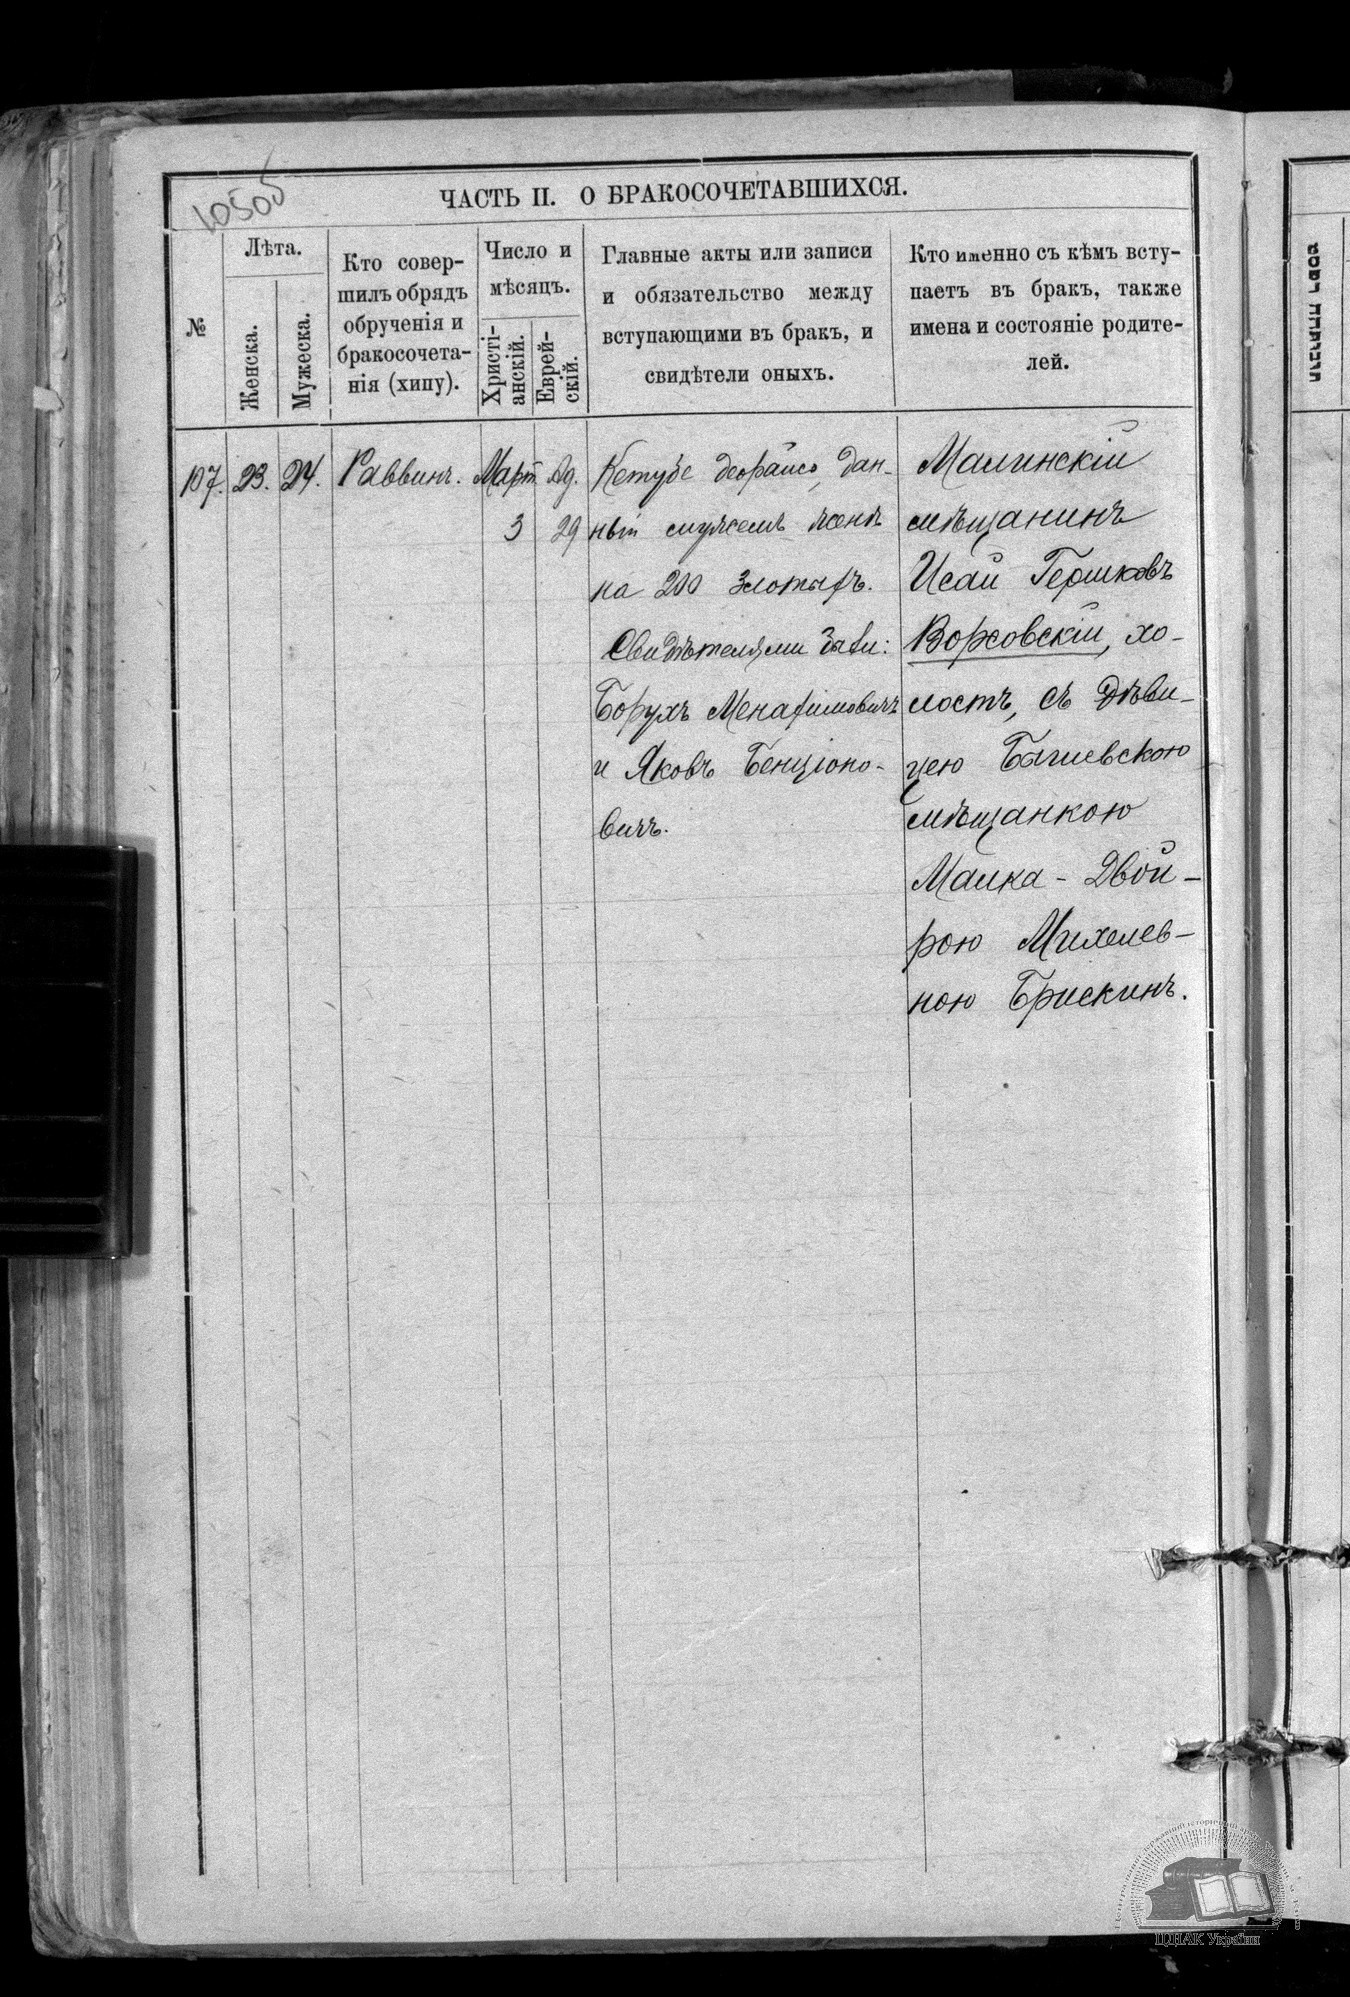 10505
ЧАСТЬ II. О БРАКОСОЧЕТАВШИХСЯ.
№
Лѣта.
Женска.
Мужеска.
Кто совер-
шилъ обрядъ
обрученія и
бракосочета-
нія (хипу).
Число и
мѣсяцъ.
Христі-
анскій.
Еврей-
скій.
Главные акты или записи
и обязательство между
вступающими въ бракъ, и
свидѣтели оныхъ.
Кто именно съ кѣмъ всту-
паетъ въ бракъ, также
имена и состояніе родите-
лей.
107. 23. 24. Раввинъ. Март Ад.
3 29
Кетубе деорайсо, дан-
ный мужемъ женѣ
на 200 злотыхъ.
Свидѣтелями были:
Борухъ Менахимовичъ
и Яковъ Бенціоно-
вичъ.
Малинскій
мѣщанинъ
Исай Гершковъ
Ворховскій, хо-
лостъ, съ дѣви-
цею
мѣщанкою
Малка-Двой-
рою Михелев-
ною Брискинъ.
ЦДІАК України